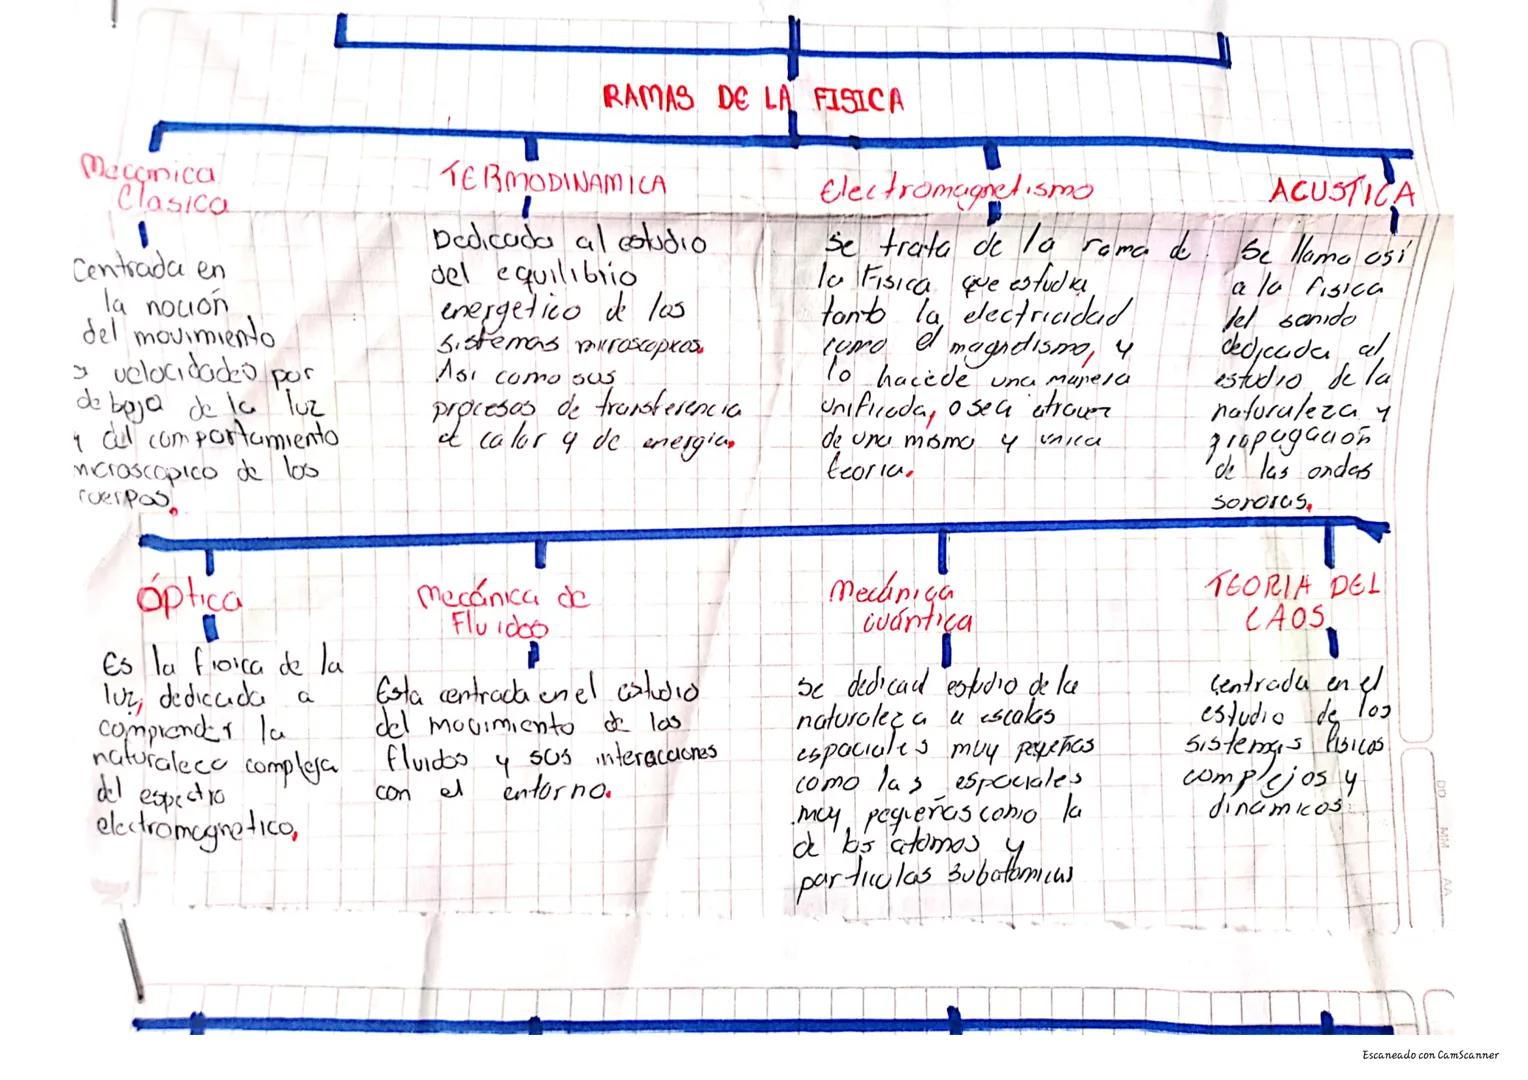 RAMAS DE LA FISICA
Mecanica
Clasica
Centrada en
la noción
del movimiento
velocidades por
debajo de la luz
y del comportamiento
microscopico de los
cuerpos.
TERMODINAMICA
Dedicada al estudio
del equilibrio
energetico de los
sistemas microscopicos.
Asi como sus
procesos de transferencia
de calor y de energia.
Electromagnetismo
Se trata de la rama de
la Fisica que estudia
tanto la electricidad
como el magnetismo, y
lo hace de una manera
unificada, o sea atravez
de una misma y unica
teoria.
ACUSTICA
Se llama asi
a la fisica
del sonido
dedicada al
estudio de la
naturaleza y
propagación
de las ondas
sonoras.
Óptica
Es la fisica de la
luz, dedicada a
comprender la
naturaleza compleja
del espectro
electromagnetico.
Mecánica de
Fluidos
Esta centrada en el estudio
del movimiento de los
fluidos y sus interacciones
con el entorno.
Mecánica
cuántica
se dedica al estudio de la
naturaleza a escalas
espaciales muy pequeñas
como las espaciales
muy pequeñas como la
de los átomos y
particulas subatomicas
TEORIA DEL
CAOS
centrada en el
estudio de los
sistemas fisicos
complejos y
dinámicos.
DD MM AA
Escaneado con CamScanner